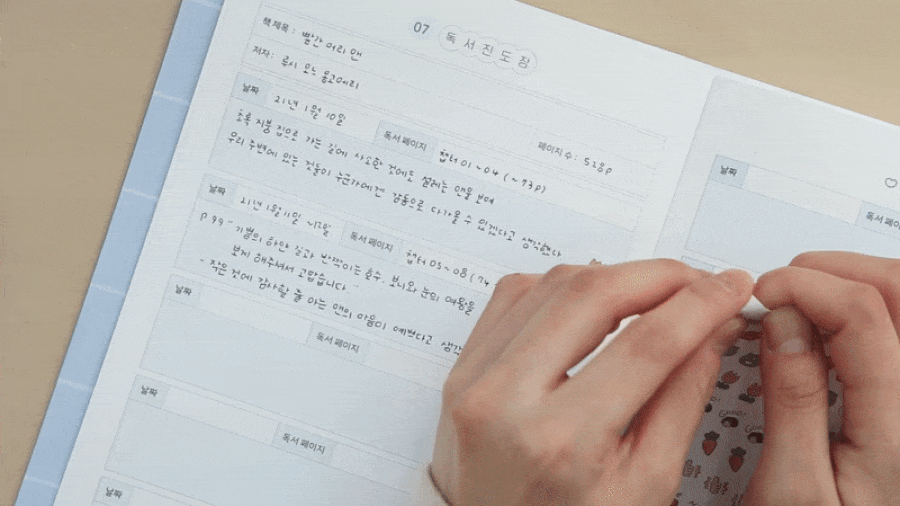 07 독서진도장
책 제목 : 빨간 머리 앤
저자 : 루시 모드 몽고메리
페이지 수 : 528p
날짜 21년 1월 10일 독서 페이지 챕터 01~04 (~73p)
초록 지붕 집으로 가는 길에 사소한 것에도 설레는 앤을 보며
우리 주변에 있는 것들이 누군가에겐 감동으로 다가올 수 있겠다고 생각했다
날짜 21년 1월 11일 ~12일 독서 페이지 챕터 05~08 (74
p 99 - 기쁨의 하얀 길과 반짝이는 호수, 보니와 눈의 여왕을
보게 해주셔서 고맙습니다
- 작은 것에 감사할 줄 아는 앤의 마음이 예쁘다고 생각
날짜
독서 페이지
날짜
독서 페이지
날짜
날짜
독서 페이